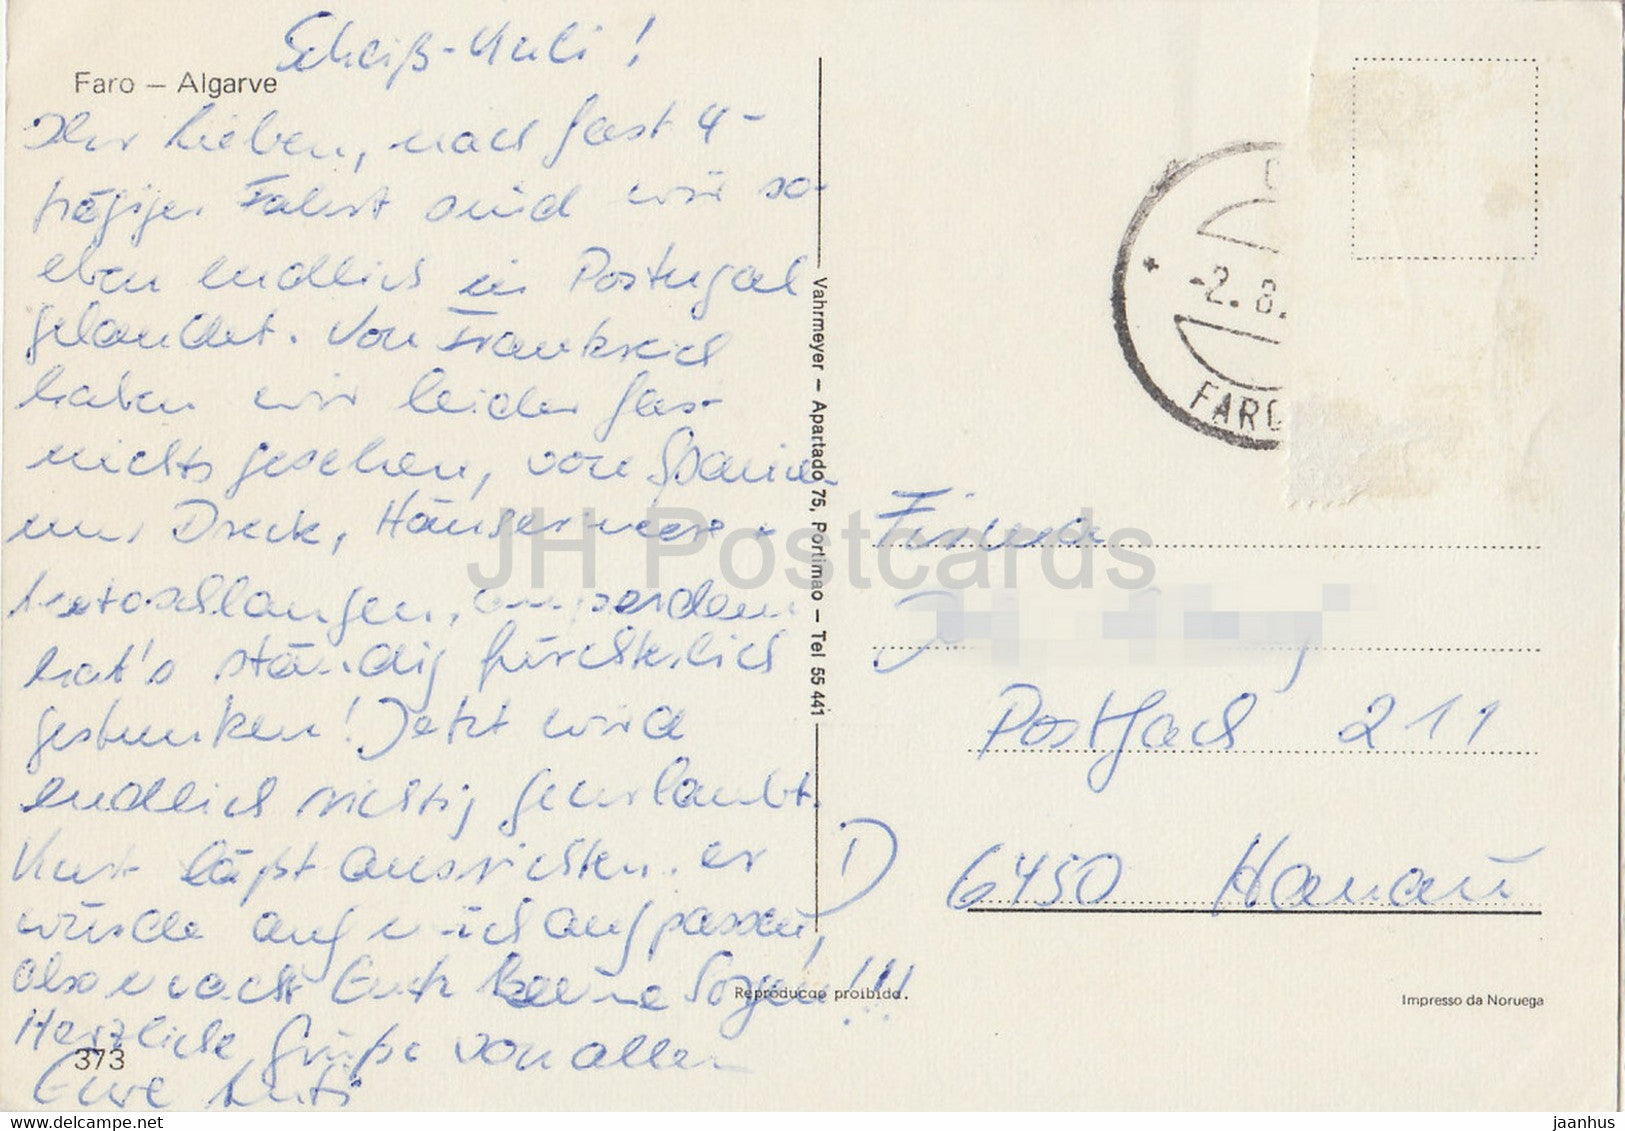 Scheiß-Kuli!
Faro – Algarve
Ihr Lieben, nach fast 4-
tägiger Fahrt sind wir so-
eben endlich in Portugal
gelandet. Von Frankreich
haben wir leider fast
nichts gesehen, von Spanien
nur Dreck, Häusermeer +
Autoschlangen, ausserdem
hat's ständig fürchterlich
gestunken! Jetzt wird
endlich richtig geurlaubt.
Kurt läßt ausrichten, er
würde auf mich aufpassen,
also macht Euch keine Sorgen!!!
Herzliche Grüße von allen
Eure
373
Vahrmeyer – Apartado 75, Portimao – Tel 55 441
Reprodução proibida.
Impresso da Noruega
-2. 8.
FARO
Firma
Postfach 211
D 6450 Hanau
JH Postcards
www.delcampe.net
jaanhus